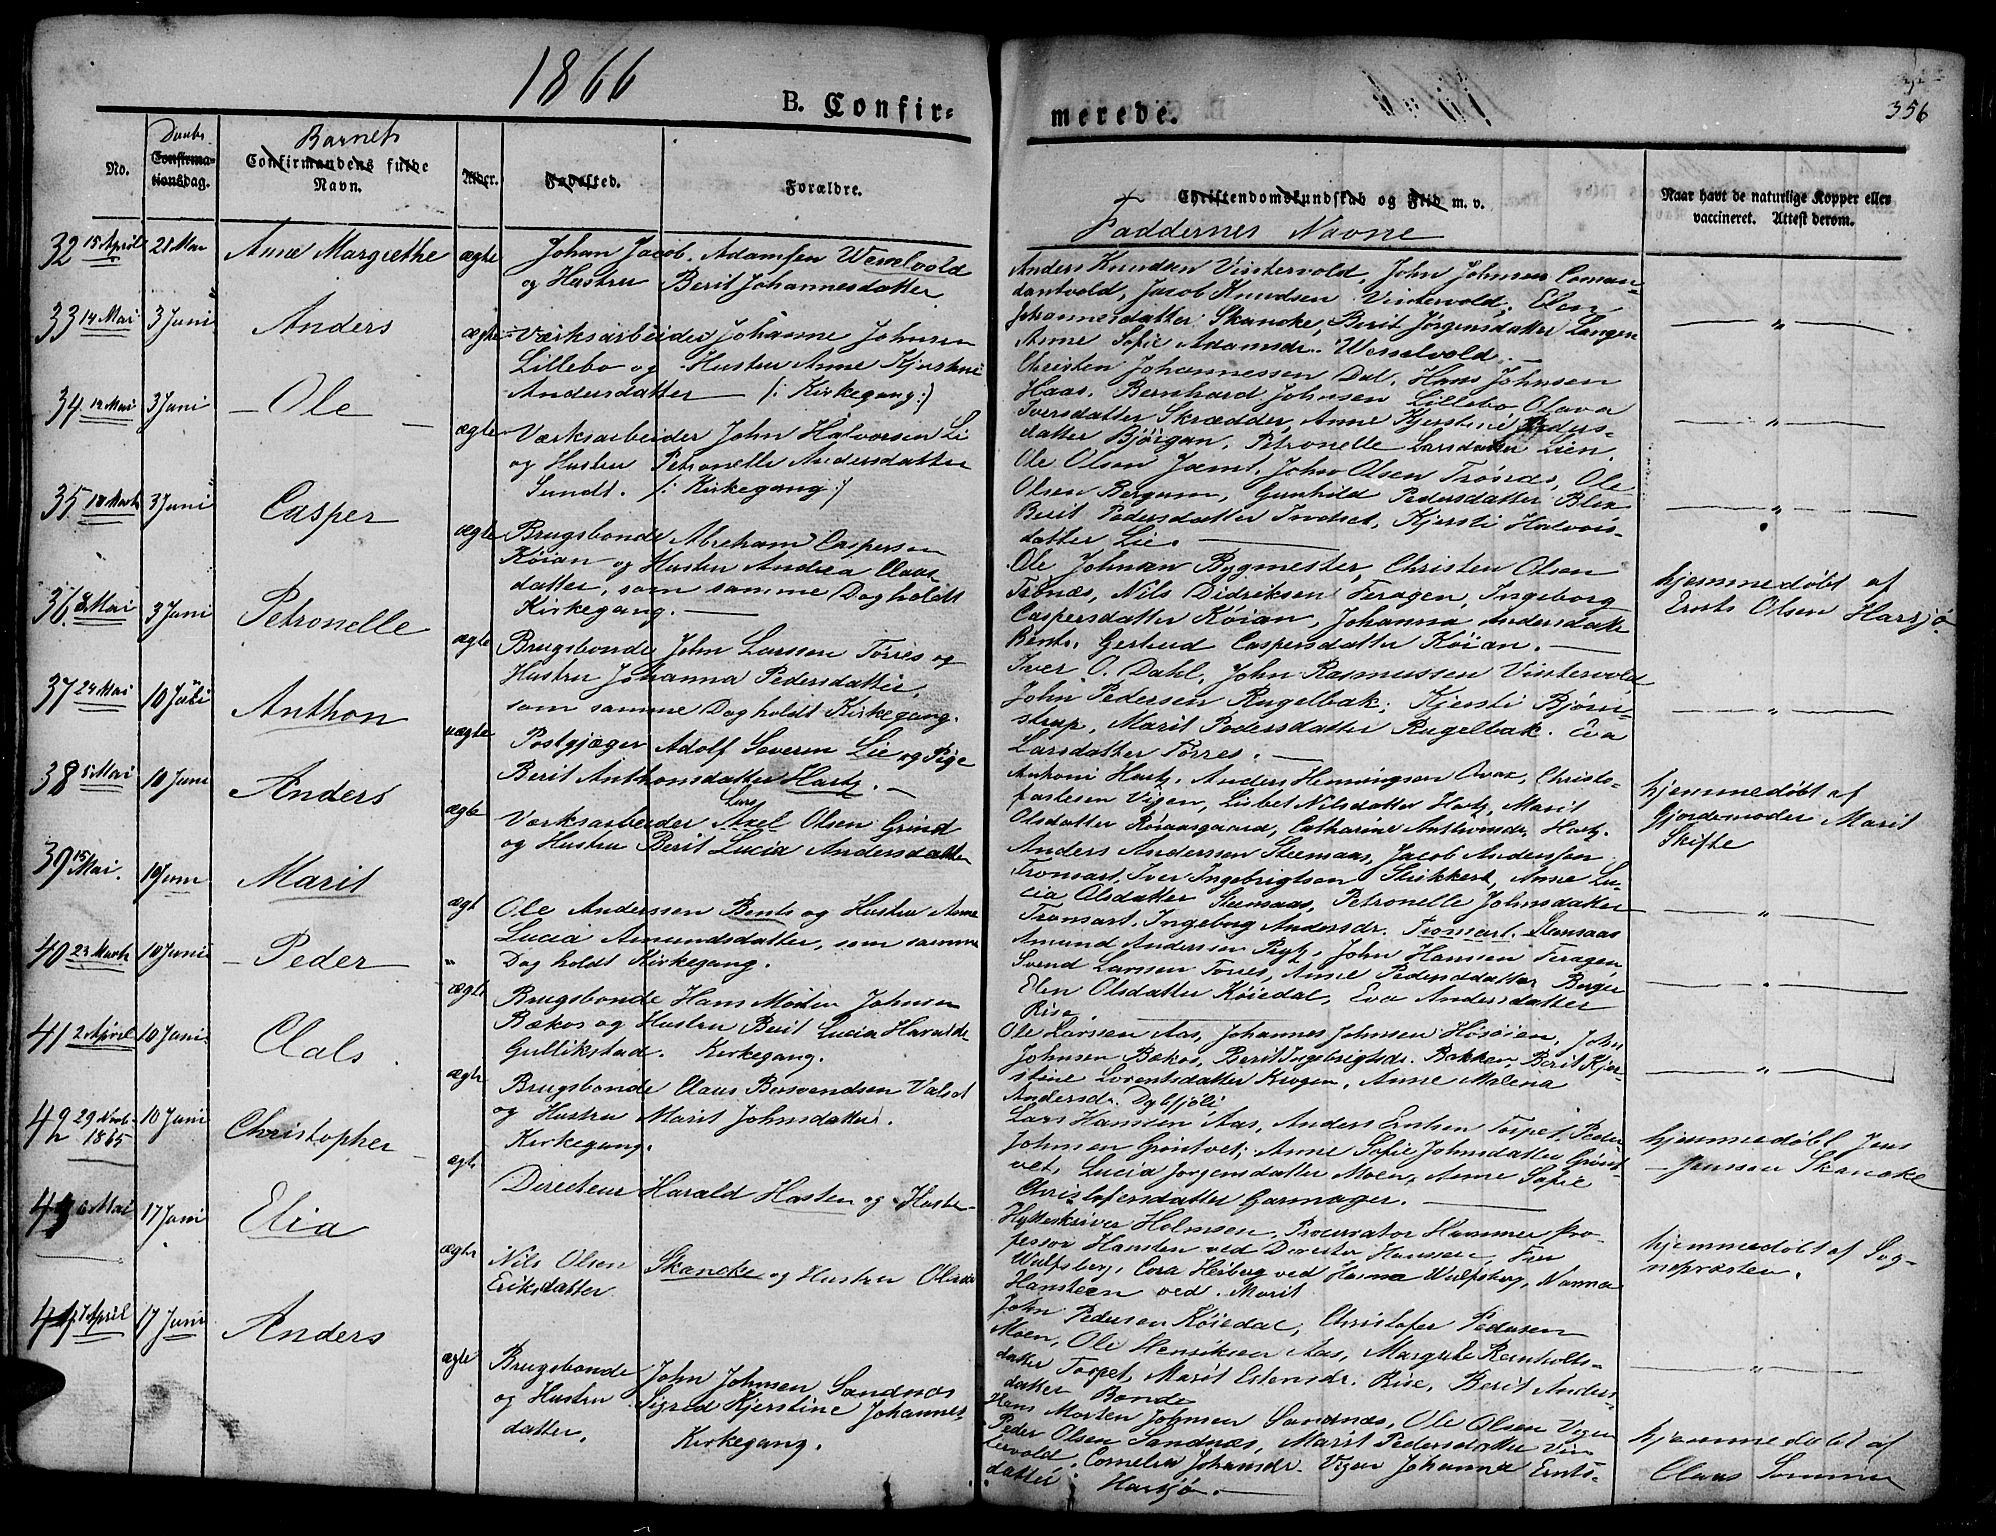 1866
B. Confir-
merede.
356
No.
Daabs
Confirma-
tionsdag.
Barnets
Confirmandens fulde
Navn.
Alder.
Fødested.
Forældre.
Christendomskundskab og Flid m. v.
Faddernes Navne
Naar havt de naturlige Kopper eller
vaccineret. Attest derom.
32 15 April 21 Mai Anne Margrethe ægte
Johan Jacob Adamsen Wesselvold
og Hustru Berit Johannesdatter
Anders Knudsen Vintervold, John Johnsen Coman-
dantvold, Jacob Knudsen Vintervold, Elen
Johannesdatter Skancke, Berit Jørgensdatter Langen
Anne Sofie Adamsdr. Wesselvold.
33 14 Mai 3 Juni Anders ægte
Værksarbeider Johannes Johnsen
Lillebo og Hustru Anne Kjerstine
Andersdatter /: Kirkegang :/
Christen Johannessen Dal, Hans Johnsen
Haas, Bernhard Johnsen Lillebo, Olava
Iversdatter Skrædder, Anne Kjerstine Peders-
datter Bjørgan, Petronelle Larsdatter Lien.
34 12 Mai 3 Juni Ole ægte
Værksarbeider John Halvorsen Li
og Hustru Petronelle Andersdatter
Sundt. /: Kirkegang :/
Ole Olsen Jamt, John Olsen Trønæs, Ole
Olsen Bergum, Gunhild Pedersdatter Blix
Berit Pedersdatter Indset, Kjersti Halvors-
datter Lie.
35 18 Marts 3 Juni Casper ægte
Brugsbonde Abraham Caspersen
Køian og Hustru Andrea Claus-
datter, som samme Dag holdt
Kirkegang.
Ole Johnsen Bygmester, Christen Olsen
Trønæs, Nils Didriksen Feragen, Ingeborg
Caspersdatter Køian, Johanna Andersdatter
Bents, Gertrud Caspersdatter Køian.
36 8 Mai 3 Juni Petronelle ægte
Brugsbonde John Larssen Tørres og
Hustru Johanna Pedersdatter,
som samme Dag holdt Kirkegang.
Iver O. Dahl, John Rasmussen Vintervold
John Pedersen Rugelbak, Kjersti Bjørn-
strup, Marit Pedersdatter Rugelbak. Eva
Larsdatter Tørres.
hjemmedøbt af
Ernts Olsen Harsjø
37 24 Mai 10 Juni Anthon uægte
Postgjæger Adolf Severin Lie og Pige
Berit Anthonsdatter Hartz.
Anthoni Hartz, Anders Henningsen Ovax, Christo-
farlesen Vigen, Lisbet Nilsdatter Hartz, Marit
Olsdatter Røraasgaard, Catharine Anthonsdr. Hartz.
38 5 Mai 10 Juni Anders ægte
Værksarbeider Lars Axel Olsen Grind
og Hustru Berit Lucia Andersdatter
Anders Anderssen Stensaas, Jacob Anderssen
Tronsart, Iver Ingebrigtsen Stikkert, Anne Lu-
cia Olsdatter Stensaas, Petronelle Johnsdatter
Tronsart, Ingeborg Andersdr. Tronsart. Stensaas
hjemmedøbt af
Gjordemoder Marit
Skifte
39 15 Mai. 10 Juni Marit ægt
Ole Anderssen Bents og Hustru Anne
Lucia Amundsdatter, som samme
Dag holdt Kirkegang.
Amund Anderssen Ryt, John Hansen Feragen
Svend Larssen Torres, Anne Pedersdatter Borgos
Elen Olsdatter Køiedal, Eva Andersdatter
Rise.
40 23 Marts 10 Juni Peder ægte
Brugsbonde Hans Morten Johnsen
Bækos og Hustru Berit Lucia Haralds
Gullikstad. Kirkegang.
Ole Larssen Aas, Johannes Johnsen Høsøien, John
Johnsen Bækos, Berit Ingebrigtsdr. Bakken, Berit Kjer-
stine Lorentsdatter Krogen, Anne Malena
Andersdr. Dybfjoli
41 2 April 10 Juni Clals ægte
Brugsbonde Claus Bosvendsen Valset
og Hustru Marit Johnsdatter.
Kirkegang.
Lars Hanssen Aas, Anders Entsen Torpet, Peder
Johnsen Grintvet, Anne Sofie Johnsdatter Grint-
vet, Lucia Jørgensdatter Moen, Anne Sofie
Christofersdatter Garmager.
42 29 Novb. 1865 10 Juni Christopher ægte
Directeur Harald Hasten og Hustru
Hytteskriver Holmsen, Procurator Hammer Pro-
fessor Hansten ved Director Hanssen, Fru
Wulfsberg, Cora Heiberg ved Hosma Wulfsberg, Nanna
Hansteen ved Marit
hjemmedøbt Jens
Jenssen Skancke
43 6 Mai 17 Juni Elia ægte
Nils Olsen Skancke og Hustru Olina
Eriksdatter
John Pedersen Køiedal, Christofer Pedersen
Moen, Ole Henriksen Aas, Margrete Reinholts-
datter Torpet, Marit Estensdr. Rise, Berit Anders-
datter Bonde
hjemmedøbt af Sog-
nepræsten.
44 17 April 17 Juni Anders ægte
Brugsbonde John Johnsen Sandnæs
og Hustru Sigred Kjerstine Johannes-
datter. Kirkegang.
Hans Morten Johnsen Sandnæs, Ole Olsen Vigen
Peder Olsen Sandnæs, Marit Pedersdatter Vin-
tervold, Cornelia Johansdr. Vigen Johanna Ernts-
datter Harsjø.
hjemmedøbt af
Claus Sommer